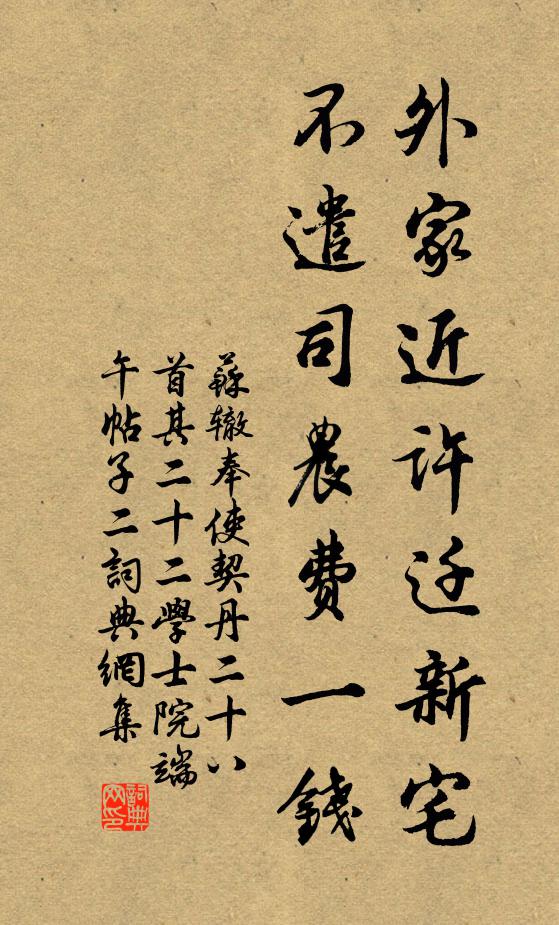 外家近許迁新宅
不遣司農費一錢
蘇轍奉使契丹二十八
首其二十二學士院端
午帖子二詞典網集
詞典網印